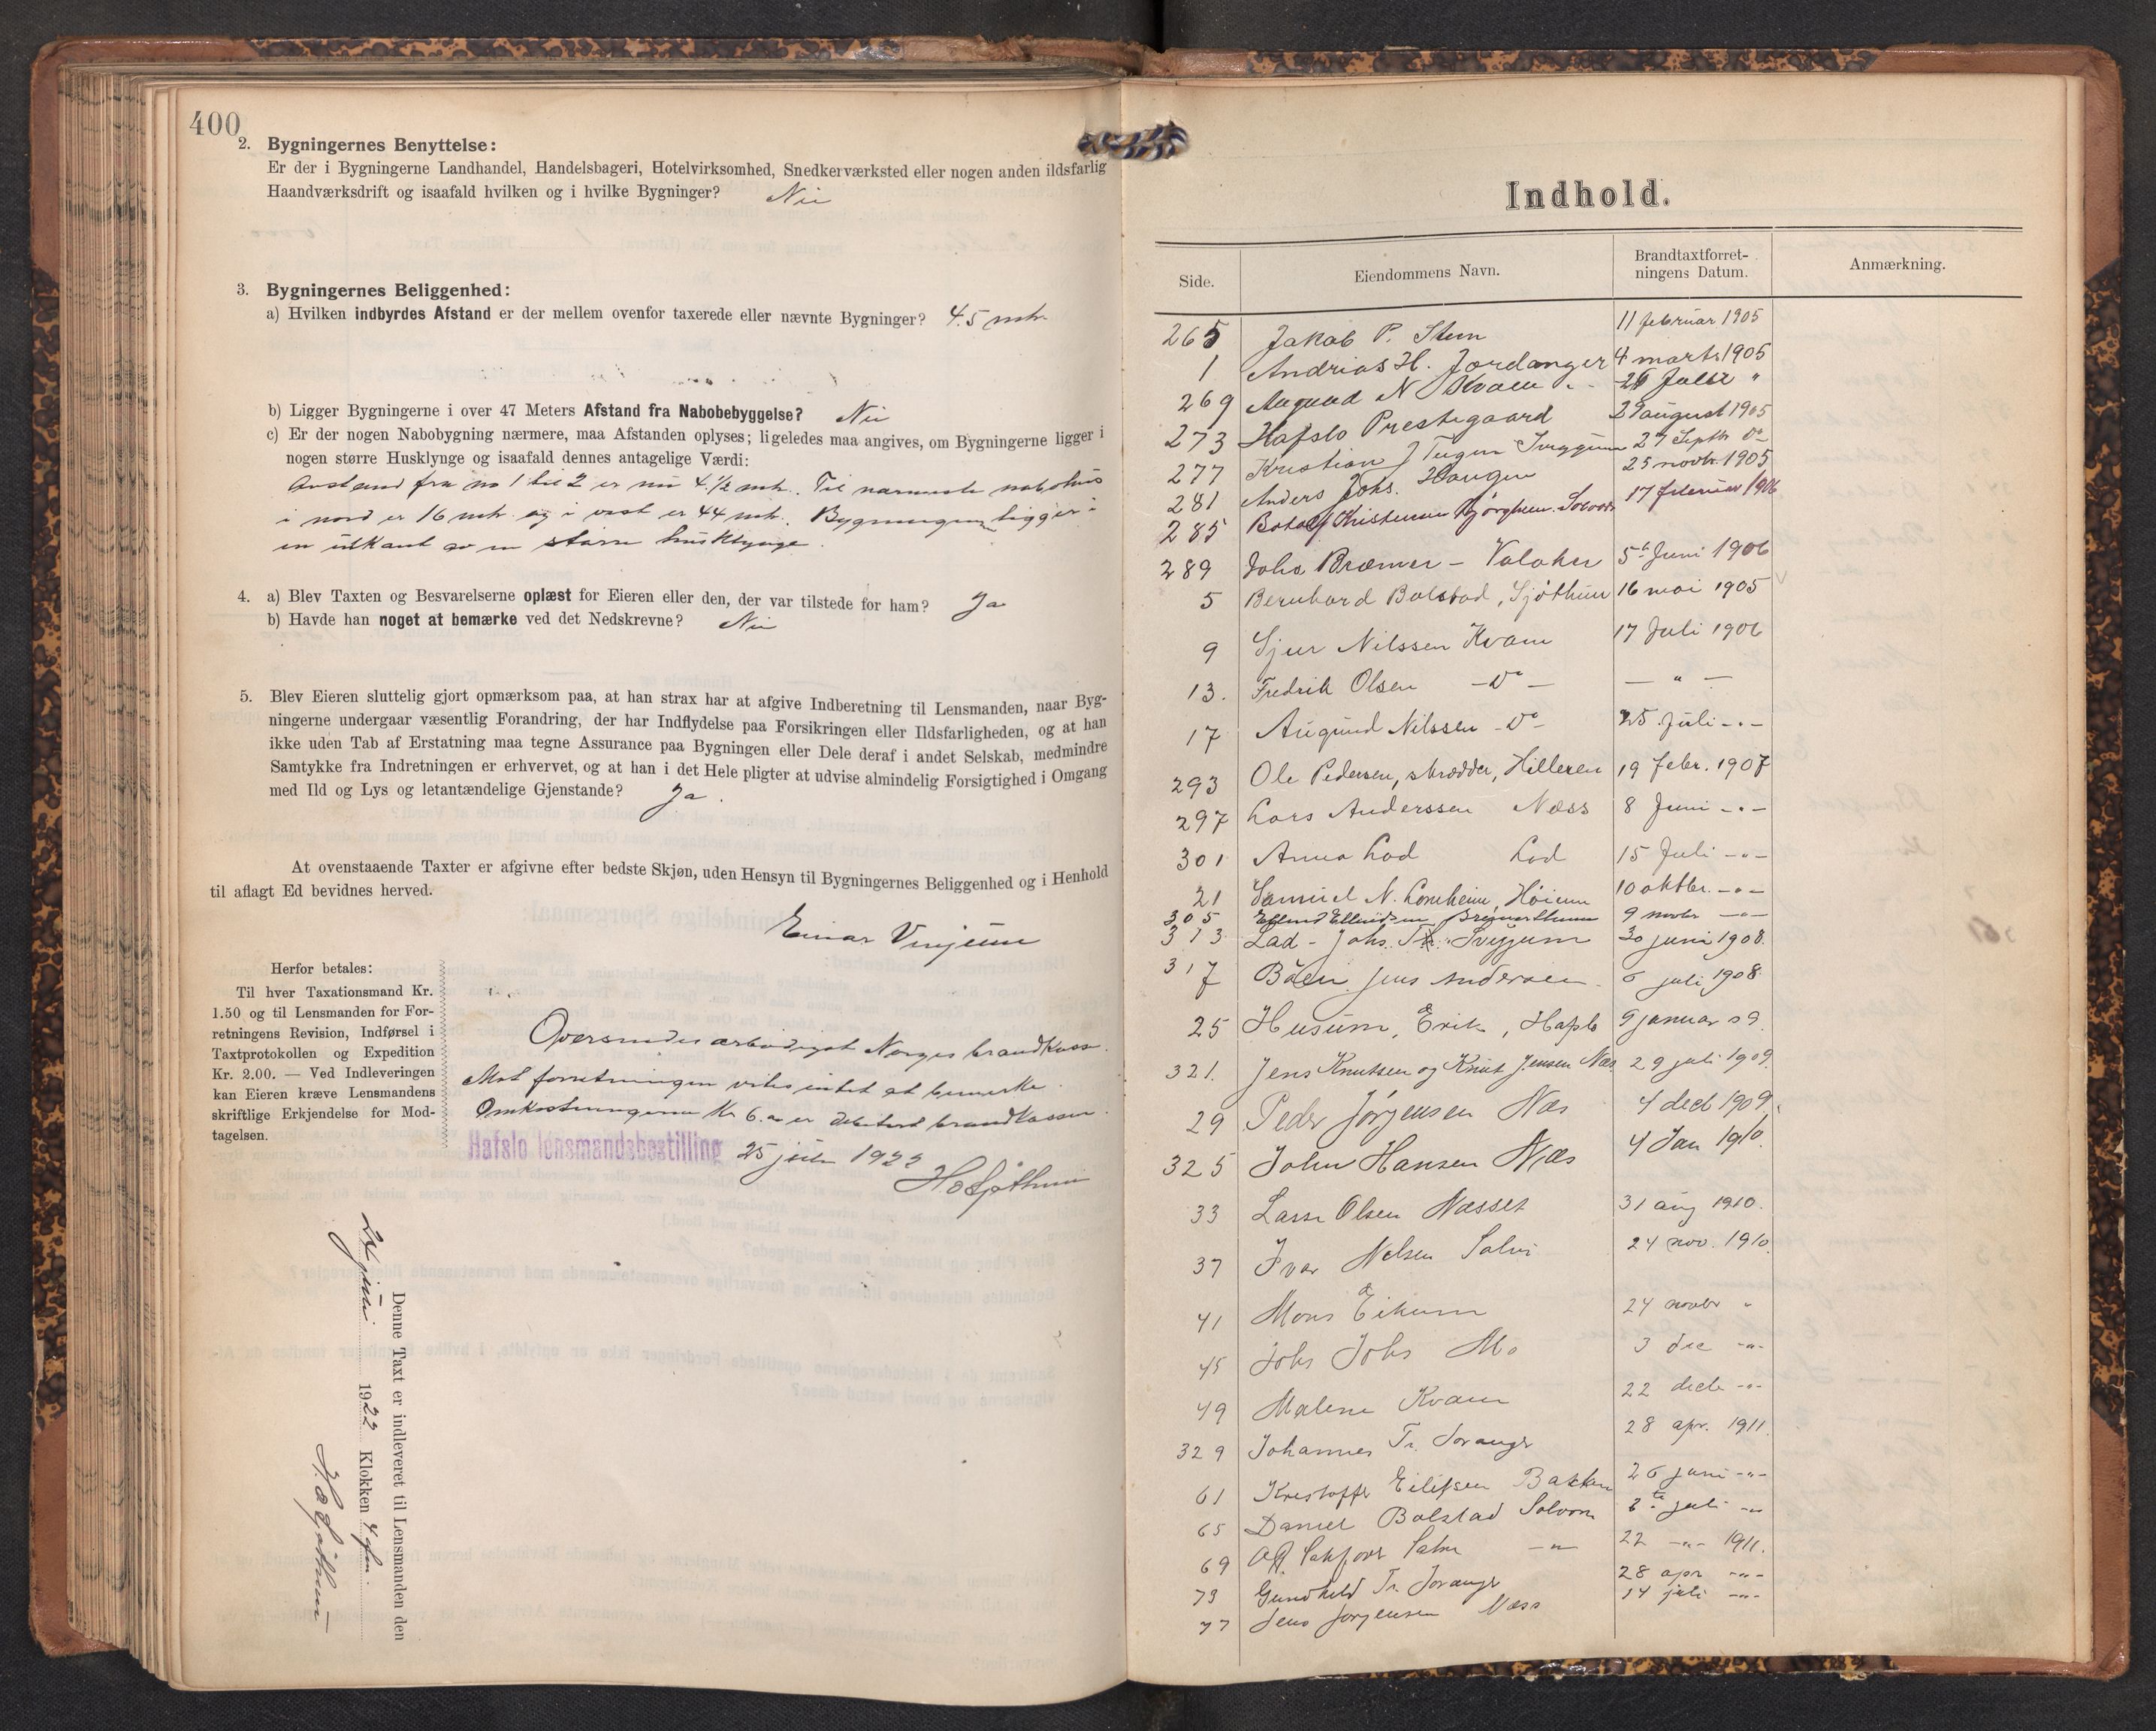 400
2. Bygningernes Benyttelse:
Er der i Bygningerne Landhandel, Handelsbageri, Hotelvirksomhed, Snedkerværksted eller nogen anden ildsfarlig
Haandværksdrift og isaafald hvilken og i hvilke Bygninger? Nei
3. Bygningernes Beliggenhed:
a) Hvilken indbyrdes Afstand er der mellem ovenfor taxerede eller nævnte Bygninger? 4.5 mtr.
b) Ligger Bygningerne i over 47 Meters Afstand fra Nabobebyggelse? Nei
c) Er der nogen Nabobygning nærmere, maa Afstanden oplyses; ligeledes maa angives, om Bygningerne ligger i
nogen større Husklynge og isaafald dennes antagelige Værdi:
Avstand fra no 1 til 2 er nu 4 1/2 mtr. Til nærmeste nabohus
i nord er 16 mtr. og i vest er 44 mtr. Bygningen ligger i
en utkant av en større husklynge.
4. a) Blev Taxten og Besvarelserne oplæst for Eieren eller den, der var tilstede for ham? Ja
b) Havde han noget at bemærke ved det Nedskrevne? Nei
5. Blev Eieren sluttelig gjort opmærksom paa, at han strax har at afgive Indberetning til Lensmanden, naar Byg-
ningerne undergaar væsentlig Forandring, der har Indflydelse paa Forsikringen eller Ildsfarligheden, og at han
ikke uden Tab af Erstatning maa tegne Assurance paa Bygningen eller Dele deraf i andet Selskab, medmindre
Samtykke fra Indretningen er erhvervet, og at han i det Hele pligter at udvise almindelig Forsigtighed i Omgang
med Ild og Lys og letantændelige Gjenstande? Ja.
At ovenstaaende Taxter er afgivne efter bedste Skjøn, uden Hensyn til Bygningernes Beliggenhed og i Henhold
til aflagt Ed bevidnes herved.
Einar Vinjum
Herfor betales:
Til hver Taxationsmand Kr.
1.50 og til Lensmanden for For-
retningens Revision, Indførsel i
Taxtprotokollen og Expedition
Kr. 2.00. — Ved Indleveringen
kan Eieren kræve Lensmandens
skriftlige Erkjendelse for Mod-
tagelsen.
Oversendes ærbødigst Norges brandkasse.
Mot forretningen vites intet at bemerke.
Omkostningerne Kr 6.- er debitert brandkassen.
Hafslo lensmandsbestilling 25 juli 1922
H Sjøthun
Denne Taxt er indleveret til Lensmanden den
1922 Klokken 4
Indhold.
Side. Eiendommens Navn. Brandtaxtforret-ningens Datum. Anmærkning.
265 Jakob P. 11 februar 1905
1 Andrias H. Jordanger 4 marts 1905
269 N Kvam 26 "
273 Hafslo Prestegaard 29 august 1905
277 Kristian J 27 Septbr Do
281 Anders Johs. Haugen 25 novbr. 1905
285 Kristensen 17 februar 1906
289 Johs Bræmer - 5te Juni 1906
5 Bernhard Bolstad, Sjøthun 16 mai 1905
9 Sjur Nilssen Kvam 17 Juli 1906
13. Fredrik Olsen - Do - — " —
17 Augund Nilssen - Do - 25 Juli - " -
293 Ole Pedersen, skrædder, Hilleren 19 febr. 1907
297 Lars Anderssen Næss 8 Juni - " -
301 Anna Lad Lad 15 Juli - " -
21 Samuel N. Lomheim, Høium 10 oktbr. - " -
305 9 novbr - " -
313 Lad - Johs. Svejjum 30 juni 1908.
317 Bøen Jens Andersen 6 juli 1908
25 Husum, Erik, Hafslo 9 januar 09
321. Jens Knutsen og Knut Jensen Næs 29 juli 1909.
29 Peder Jørgensen Næs 4 decb 1909.
325 John Hansen Næs 4 Jan 1910.
33 Lasse Olsen Næsset 31 aug 1910.
37 Iver Nelsen 24 nov. 1910.
41 Mons Eikum 24 novbr "
45 Johs Johs Mo 3 dec - " -
49 Malene Kvam 22 decb - " -
329 Johannes Tr. 28 apr. 1911.
61 Kristoffer Eilifsen Bakken 26 juni - " -
65 Daniel Bolstad Solvorn 6te juli - " -
69 - " - 22 - " - 1911.
73 Gundhild Tr. 28 apr - " -
77 Jens Jørgensen Næss 14 juli - " -